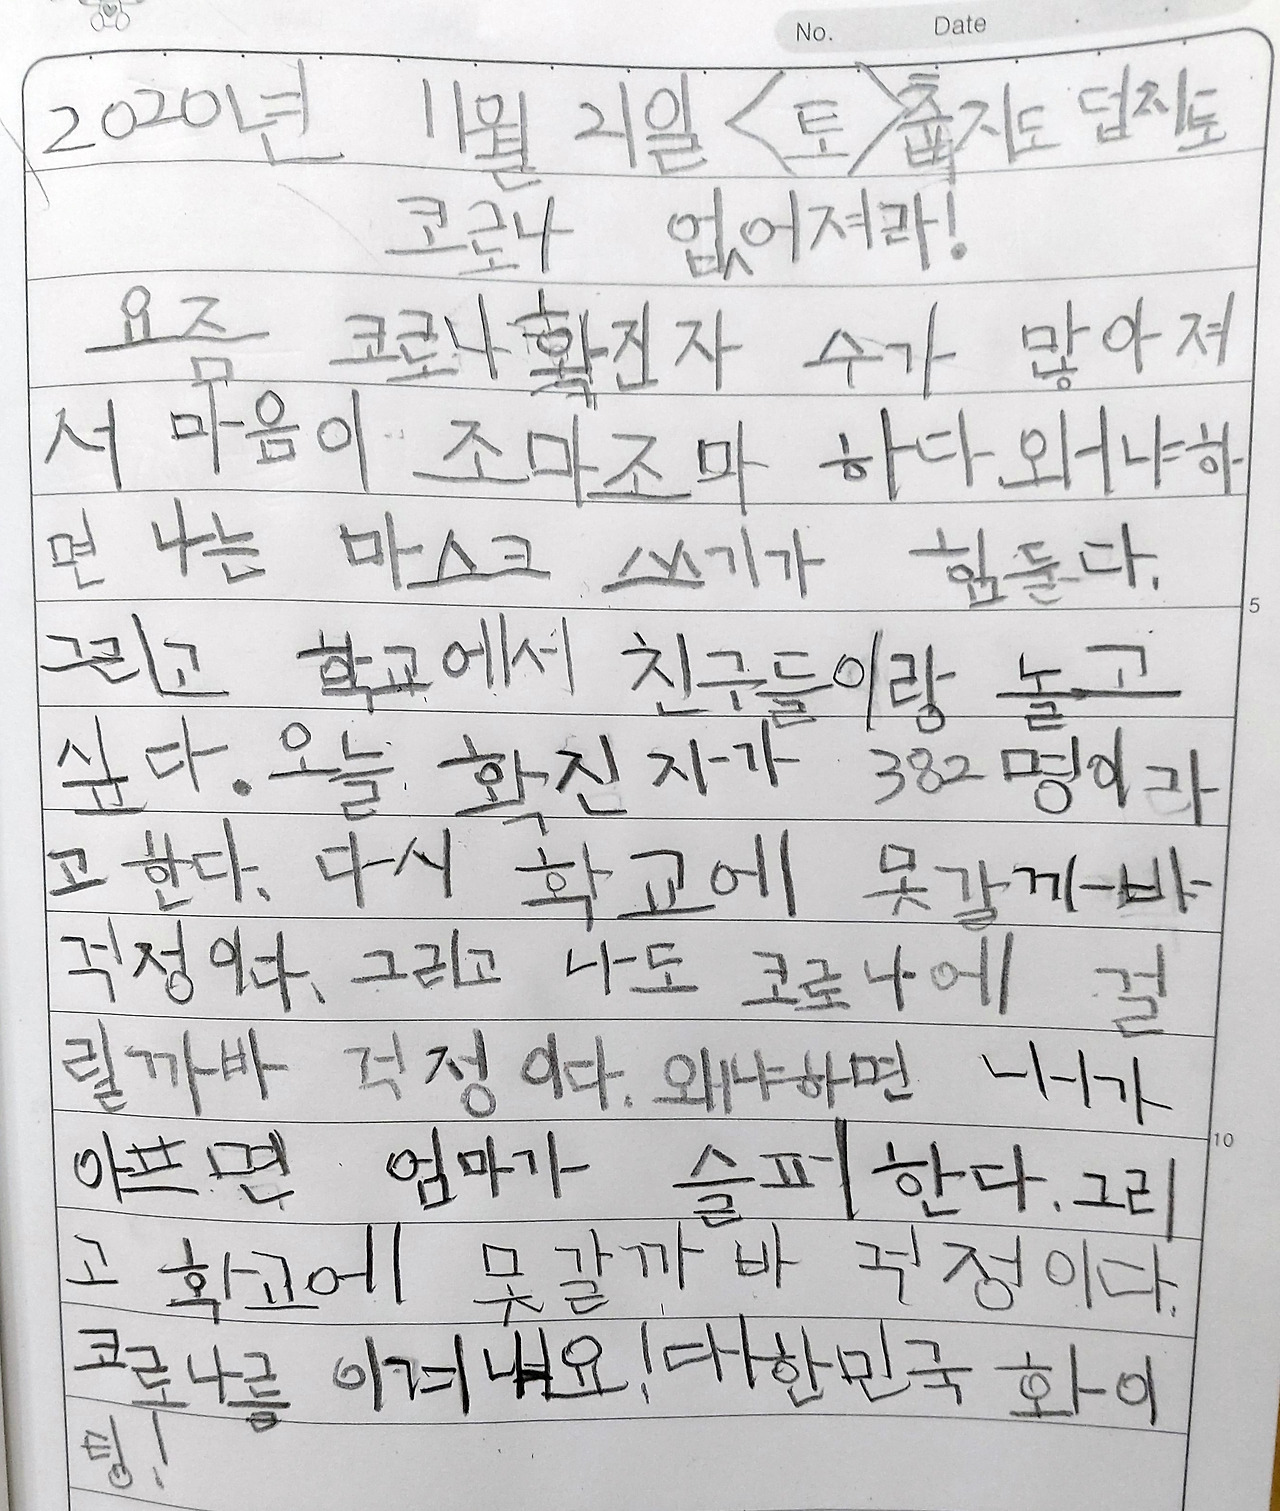 No. Date
2020년 11월 21일 <토> 춥지도 덥지도
코로나 없어져라!
요즘 코로나 확진자 수가 많아져
서 마음이 조마조마 하다. 왜냐하
면 나는 마스크 쓰기가 힘둔다.
5
그리고 학교에서 친구들이랑 놀고
싶다. 오늘 확진자가 382명이라
고 한다. 다시 학교에 못갈까바
걱정이다. 그리고 나도 코로나에 걸
릴까바 걱정이다. 왜냐하면 내가
10
아프면 엄마가 슬퍼한다. 그리
고 학교에 못갈까바 걱정이다.
코로나를 이겨내요! 대한민국 화이
팅!